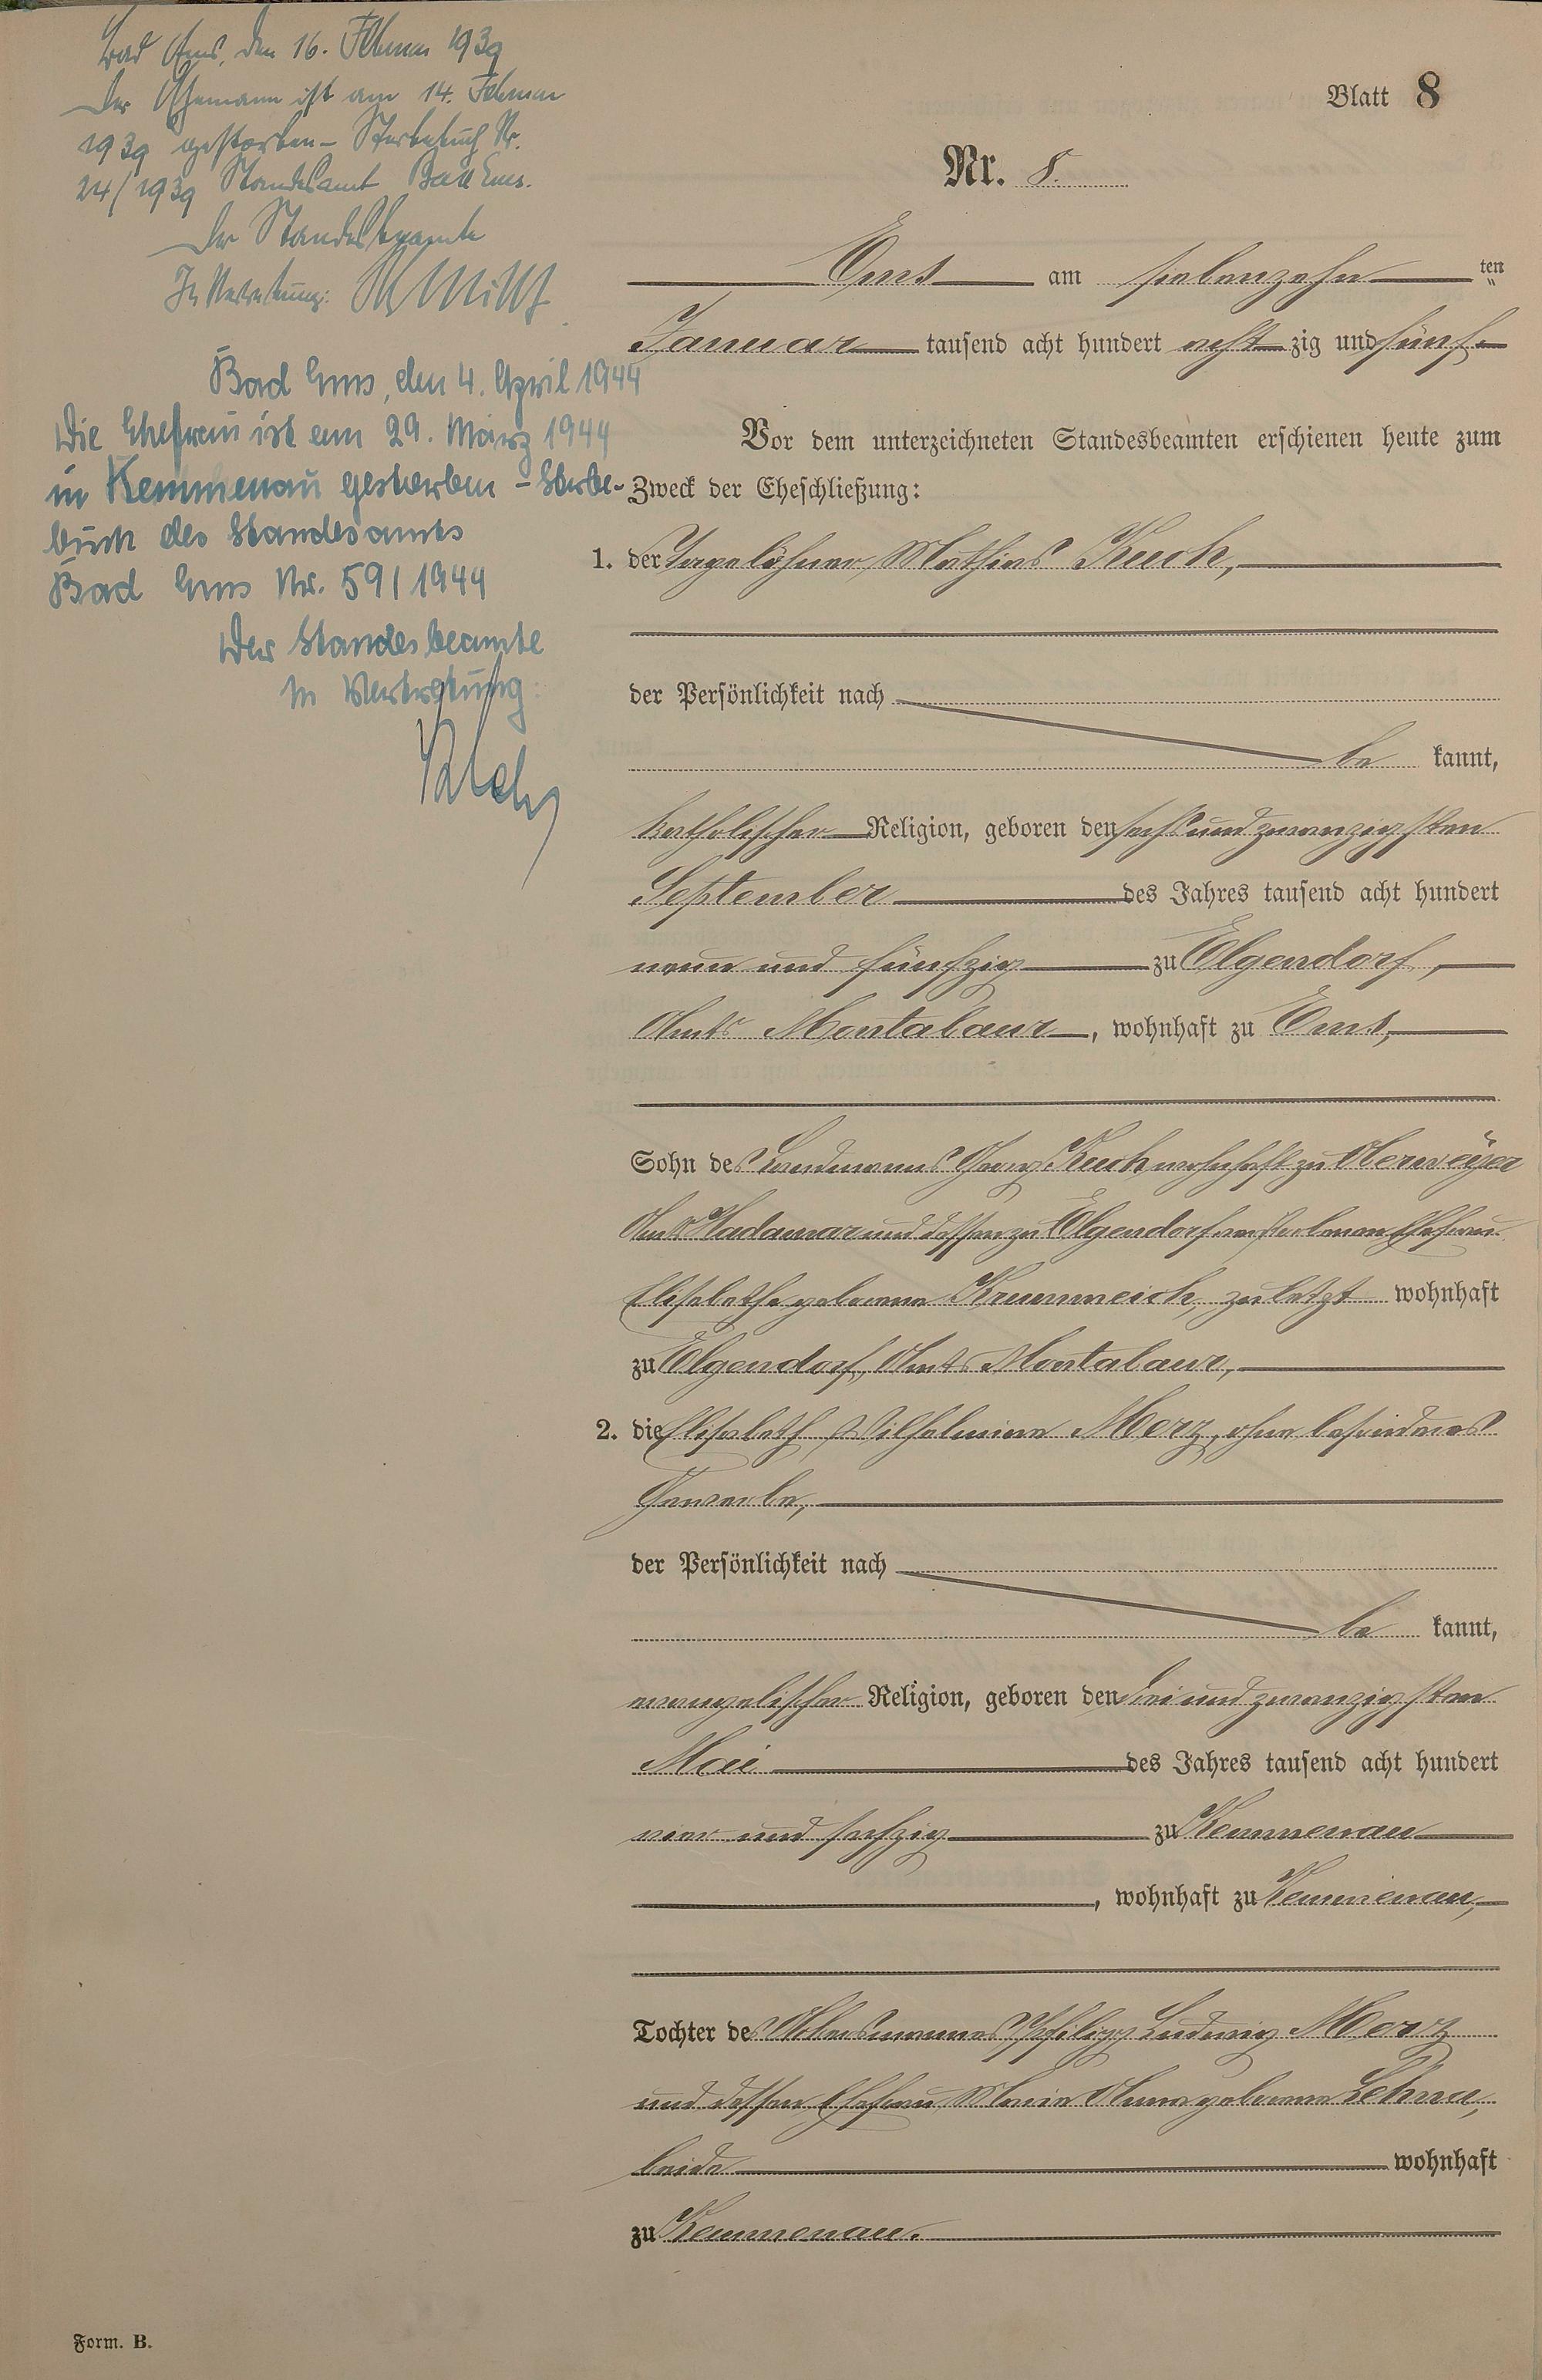 Bad Ems, den 16. Februar 1939
Der Ehemann ist am 14. Februar
1939 gestorben – Sterbebuch Nr.
24/1939 Standesamt Bad Ems.
Der Standesbeamte
In Vertretung:
Bad Ems, den 4. April 1944
Die Ehefrau ist am 29. März 1944
in Kemmenau gestorben – Sterbe-
buch des Standesamts
Bad Ems Nr. 59/1944
Der Standesbeamte
In Vertretung:
Blatt 8
Nr. 8.
Ems am siebenzehn ten
Januar tausend acht hundert acht zig und fünf
Vor dem unterzeichneten Standesbeamten erschienen heute zum
Zweck der Eheschließung:
1. der Tagelöhner Mathias Kuch,
der Persönlichkeit nach
be kannt,
katholischer Religion, geboren den sechs und zwanzigsten
September des Jahres tausend acht hundert
neun und fünfzig zu Elgendorf,
Amts Montabaur, wohnhaft zu Ems,
Sohn des Landmanns Georg Kuch wohnhaft zu Oberweyer
Amts Hadamar und dessen zu Elgendorf verstorbenen Ehefrau
Elisabethe geborene Krummeich, zuletzt wohnhaft
zu Elgendorf, Amts Montabaur,
2. die Elisabeth Wilhelmine Merz, ohne besonderes
Gewerbe,
der Persönlichkeit nach
be kannt,
evangelischer Religion, geboren den drei und zwanzigsten
Mai des Jahres tausend acht hundert
vier und sechzig zu Kemmenau
, wohnhaft zu Kemmenau,
Tochter des Ackersmannes Philipp Ludwig Merz
und dessen Ehefrau Maria Anna geborene Lehna,
beide wohnhaft
zu Kemmenau.
Form. B.